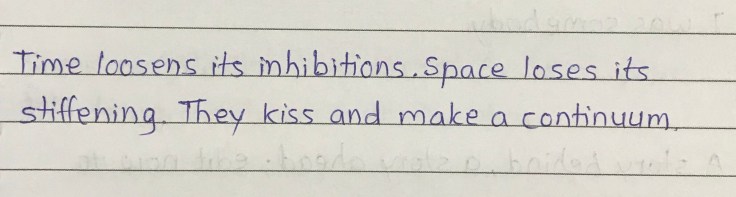 Time loosens its inhibitions. Space loses its
stiffening. They kiss and make a continuum.